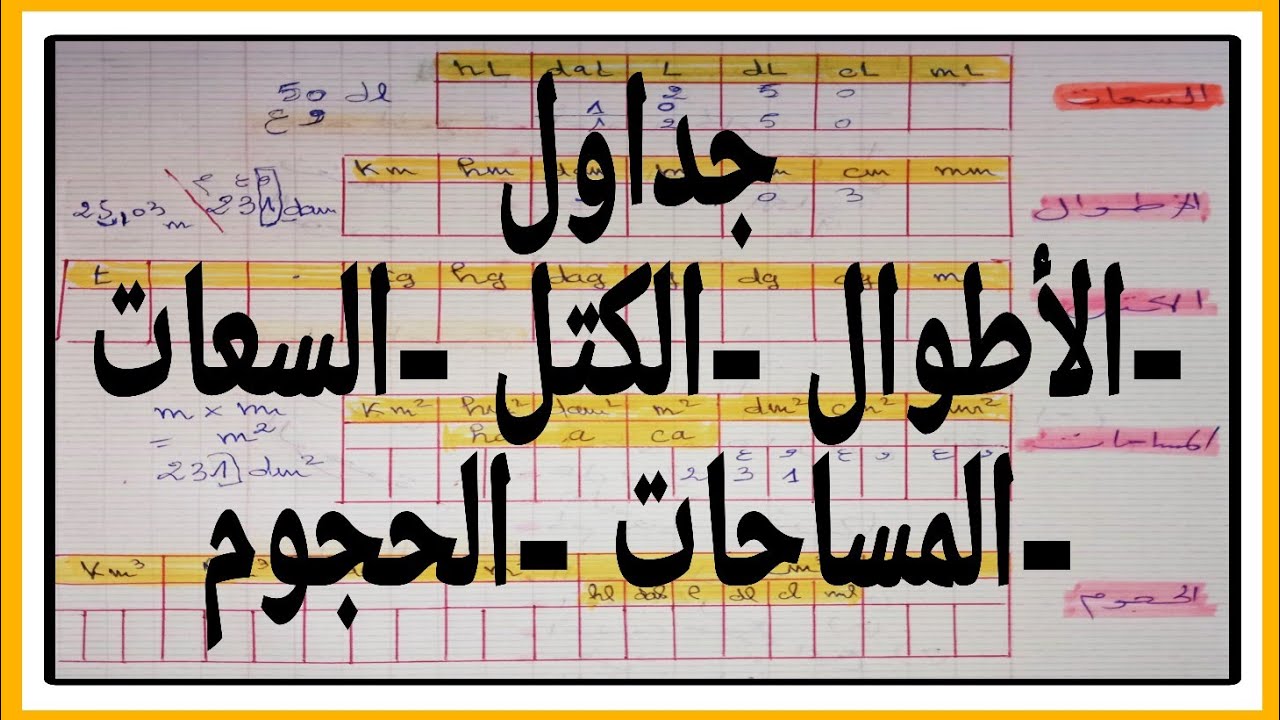 hL daL L dL cL mL
السعات
50 dl
2 5 0
1 0
1 2 5 0
جداول
Km hm cm mm
0 3
الأطوال
25,03 m
231 dam
t hg dag dg
-الأطوال -الكتل -السعات
m × m
= m²
231 dm²
Km² m² dm²
a ca
2 3 1
المساحات
-المساحات -الحجوم
Km³
hl dal l dl cl ml
الحجوم